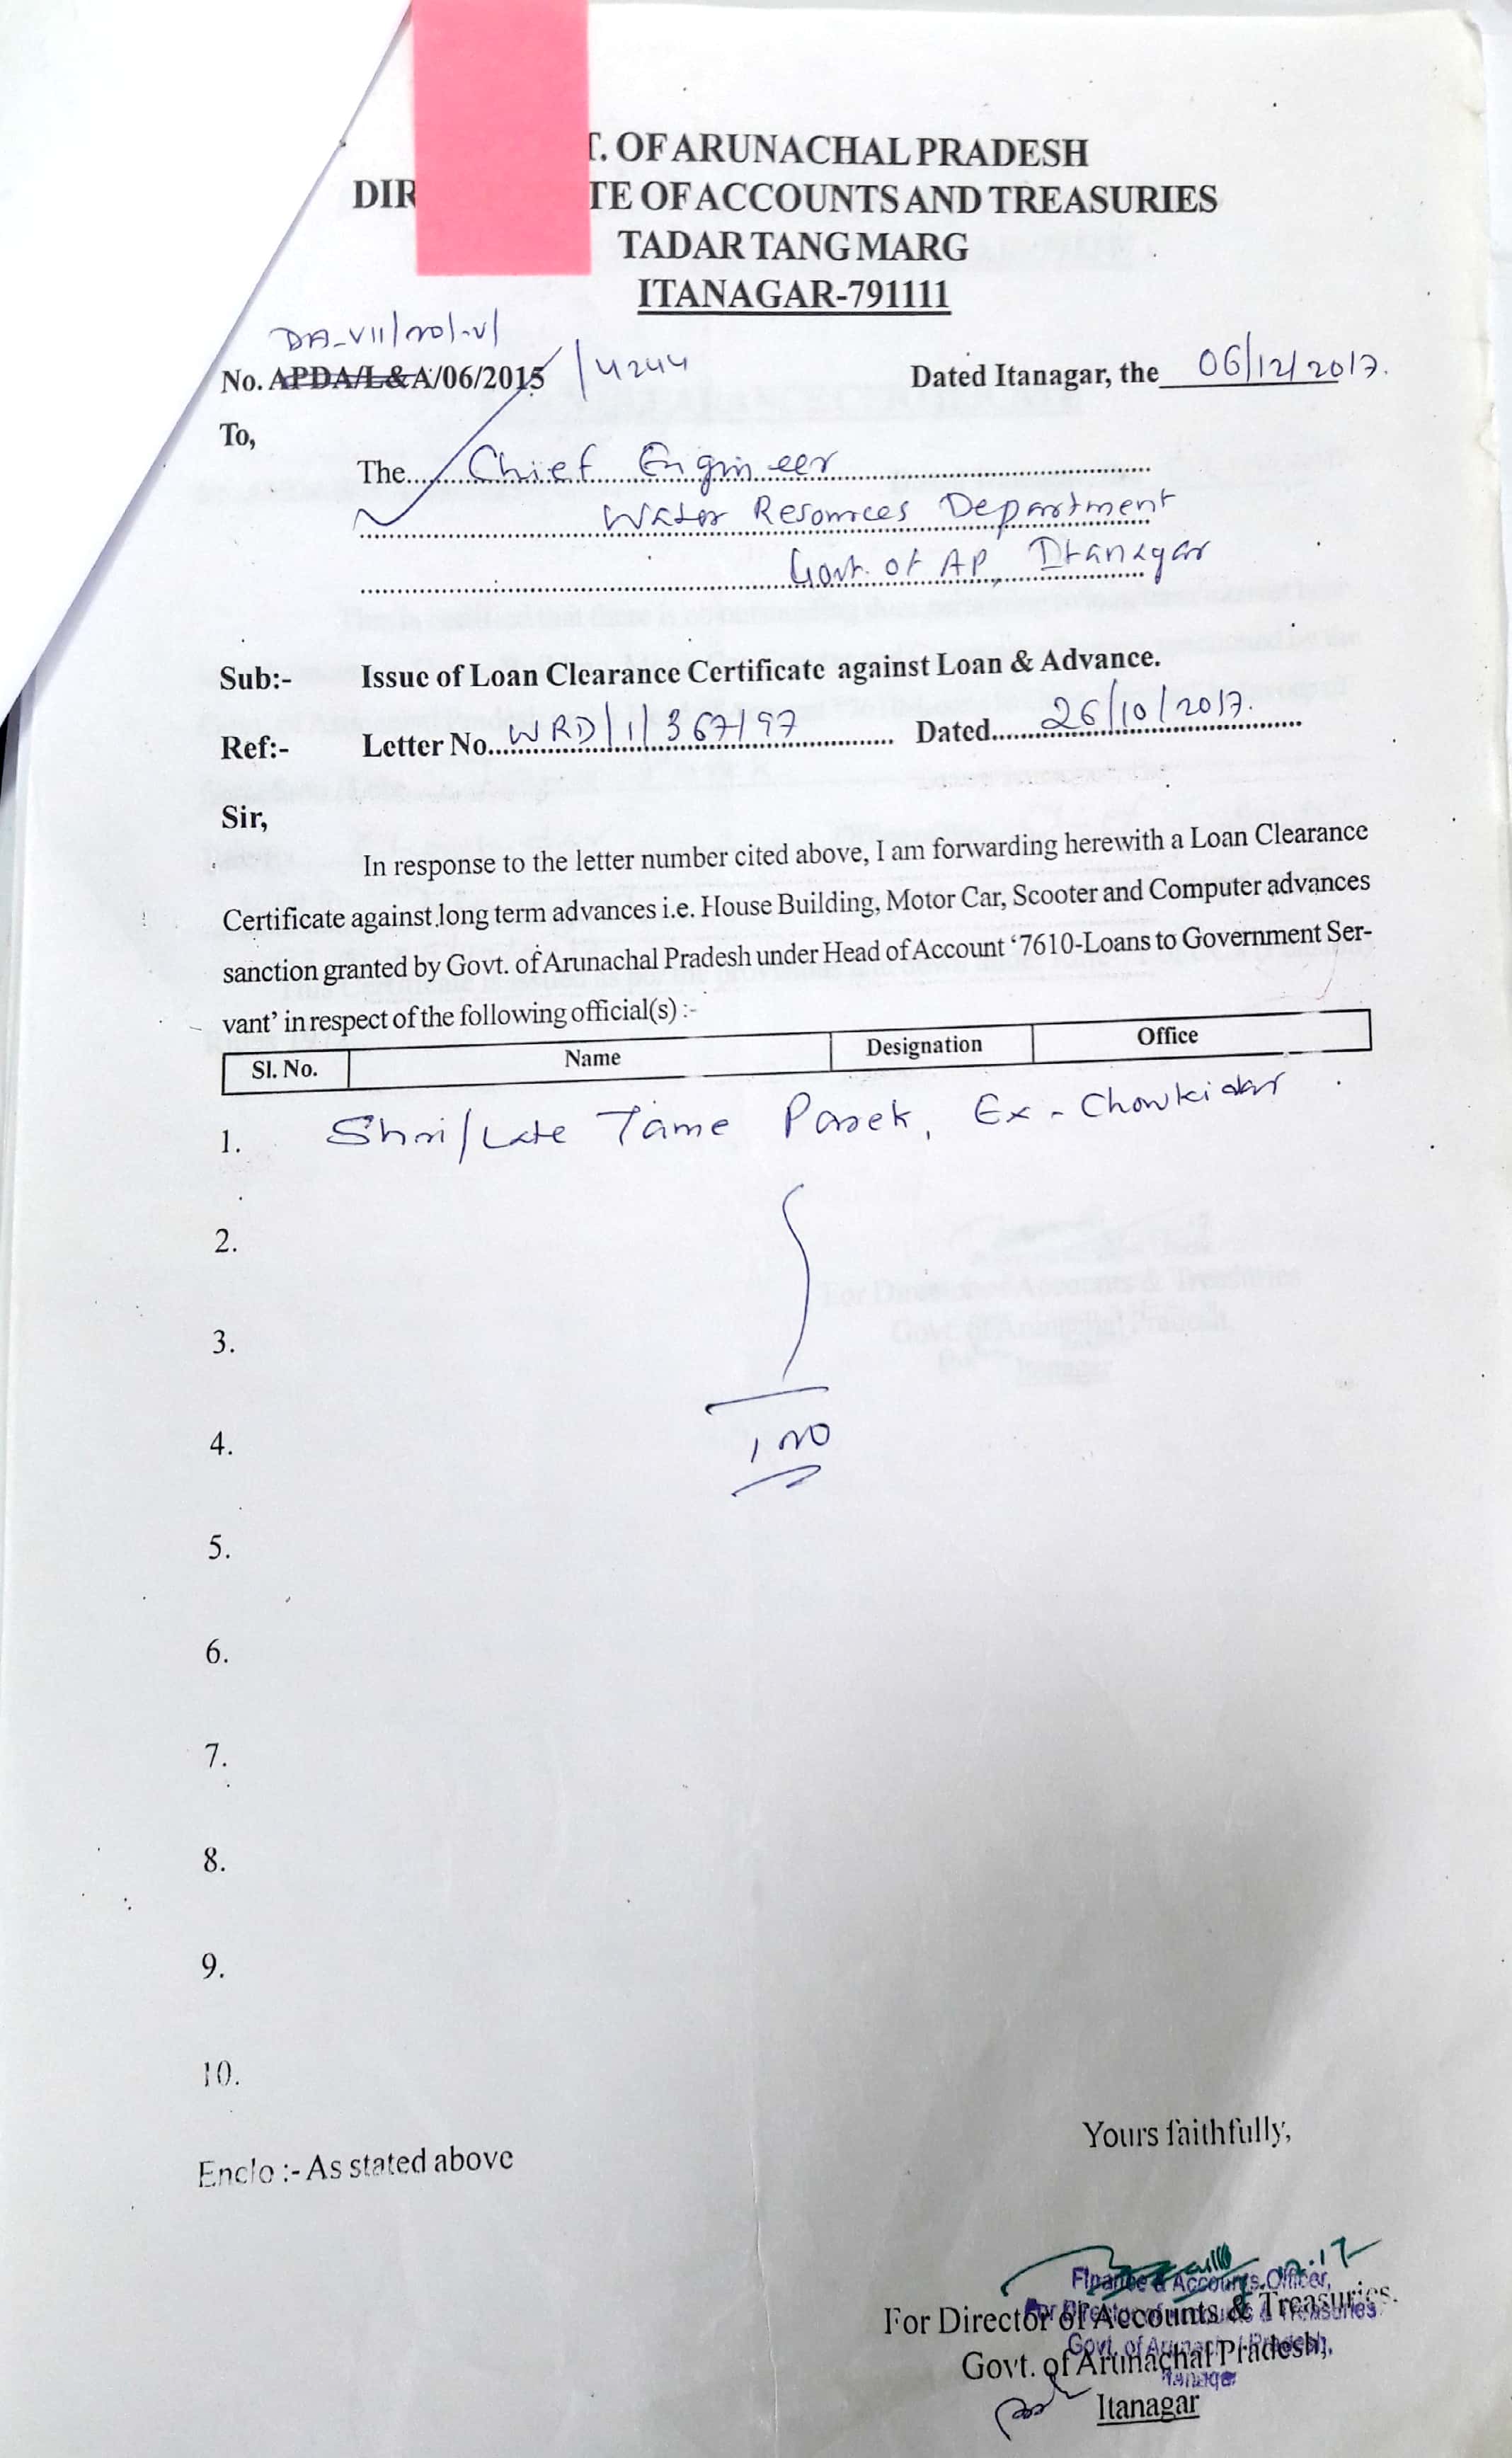 T. OF ARUNACHAL PRADESH
DIR TE OF ACCOUNTS AND TREASURIES
TADAR TANG MARG
ITANAGAR-791111
DA-VII/20/-V/
No. APDA/L&A/06/2015 /4244 Dated Itanagar, the 06/12/2017.
To,
The Chief Engineer
Water Resources Department
Govt. of AP, Itanagar
Sub:- Issue of Loan Clearance Certificate against Loan & Advance.
Ref:- Letter No. WRD/1/367/97 Dated 26/10/2017.
Sir,
In response to the letter number cited above, I am forwarding herewith a Loan Clearance
Certificate against long term advances i.e. House Building, Motor Car, Scooter and Computer advances
sanction granted by Govt. of Arunachal Pradesh under Head of Account ‘7610-Loans to Government Ser-
vant’ in respect of the following official(s) :-
Sl. No. Name Designation Office
1. Shri/Late Tame Parek, Ex-Chowkidar
2.
3.
4. 1 no
5.
6.
7.
8.
9.
10.
Yours faithfully,
Enclo :- As stated above
Finance & Accounts Officer,
For Director of Accounts & Treasuries
For Director of Accounts & Treasuries.
Govt. of Arunachal Pradesh,
Govt. of Arunachal Pradesh,
Itanagar
Itanagar